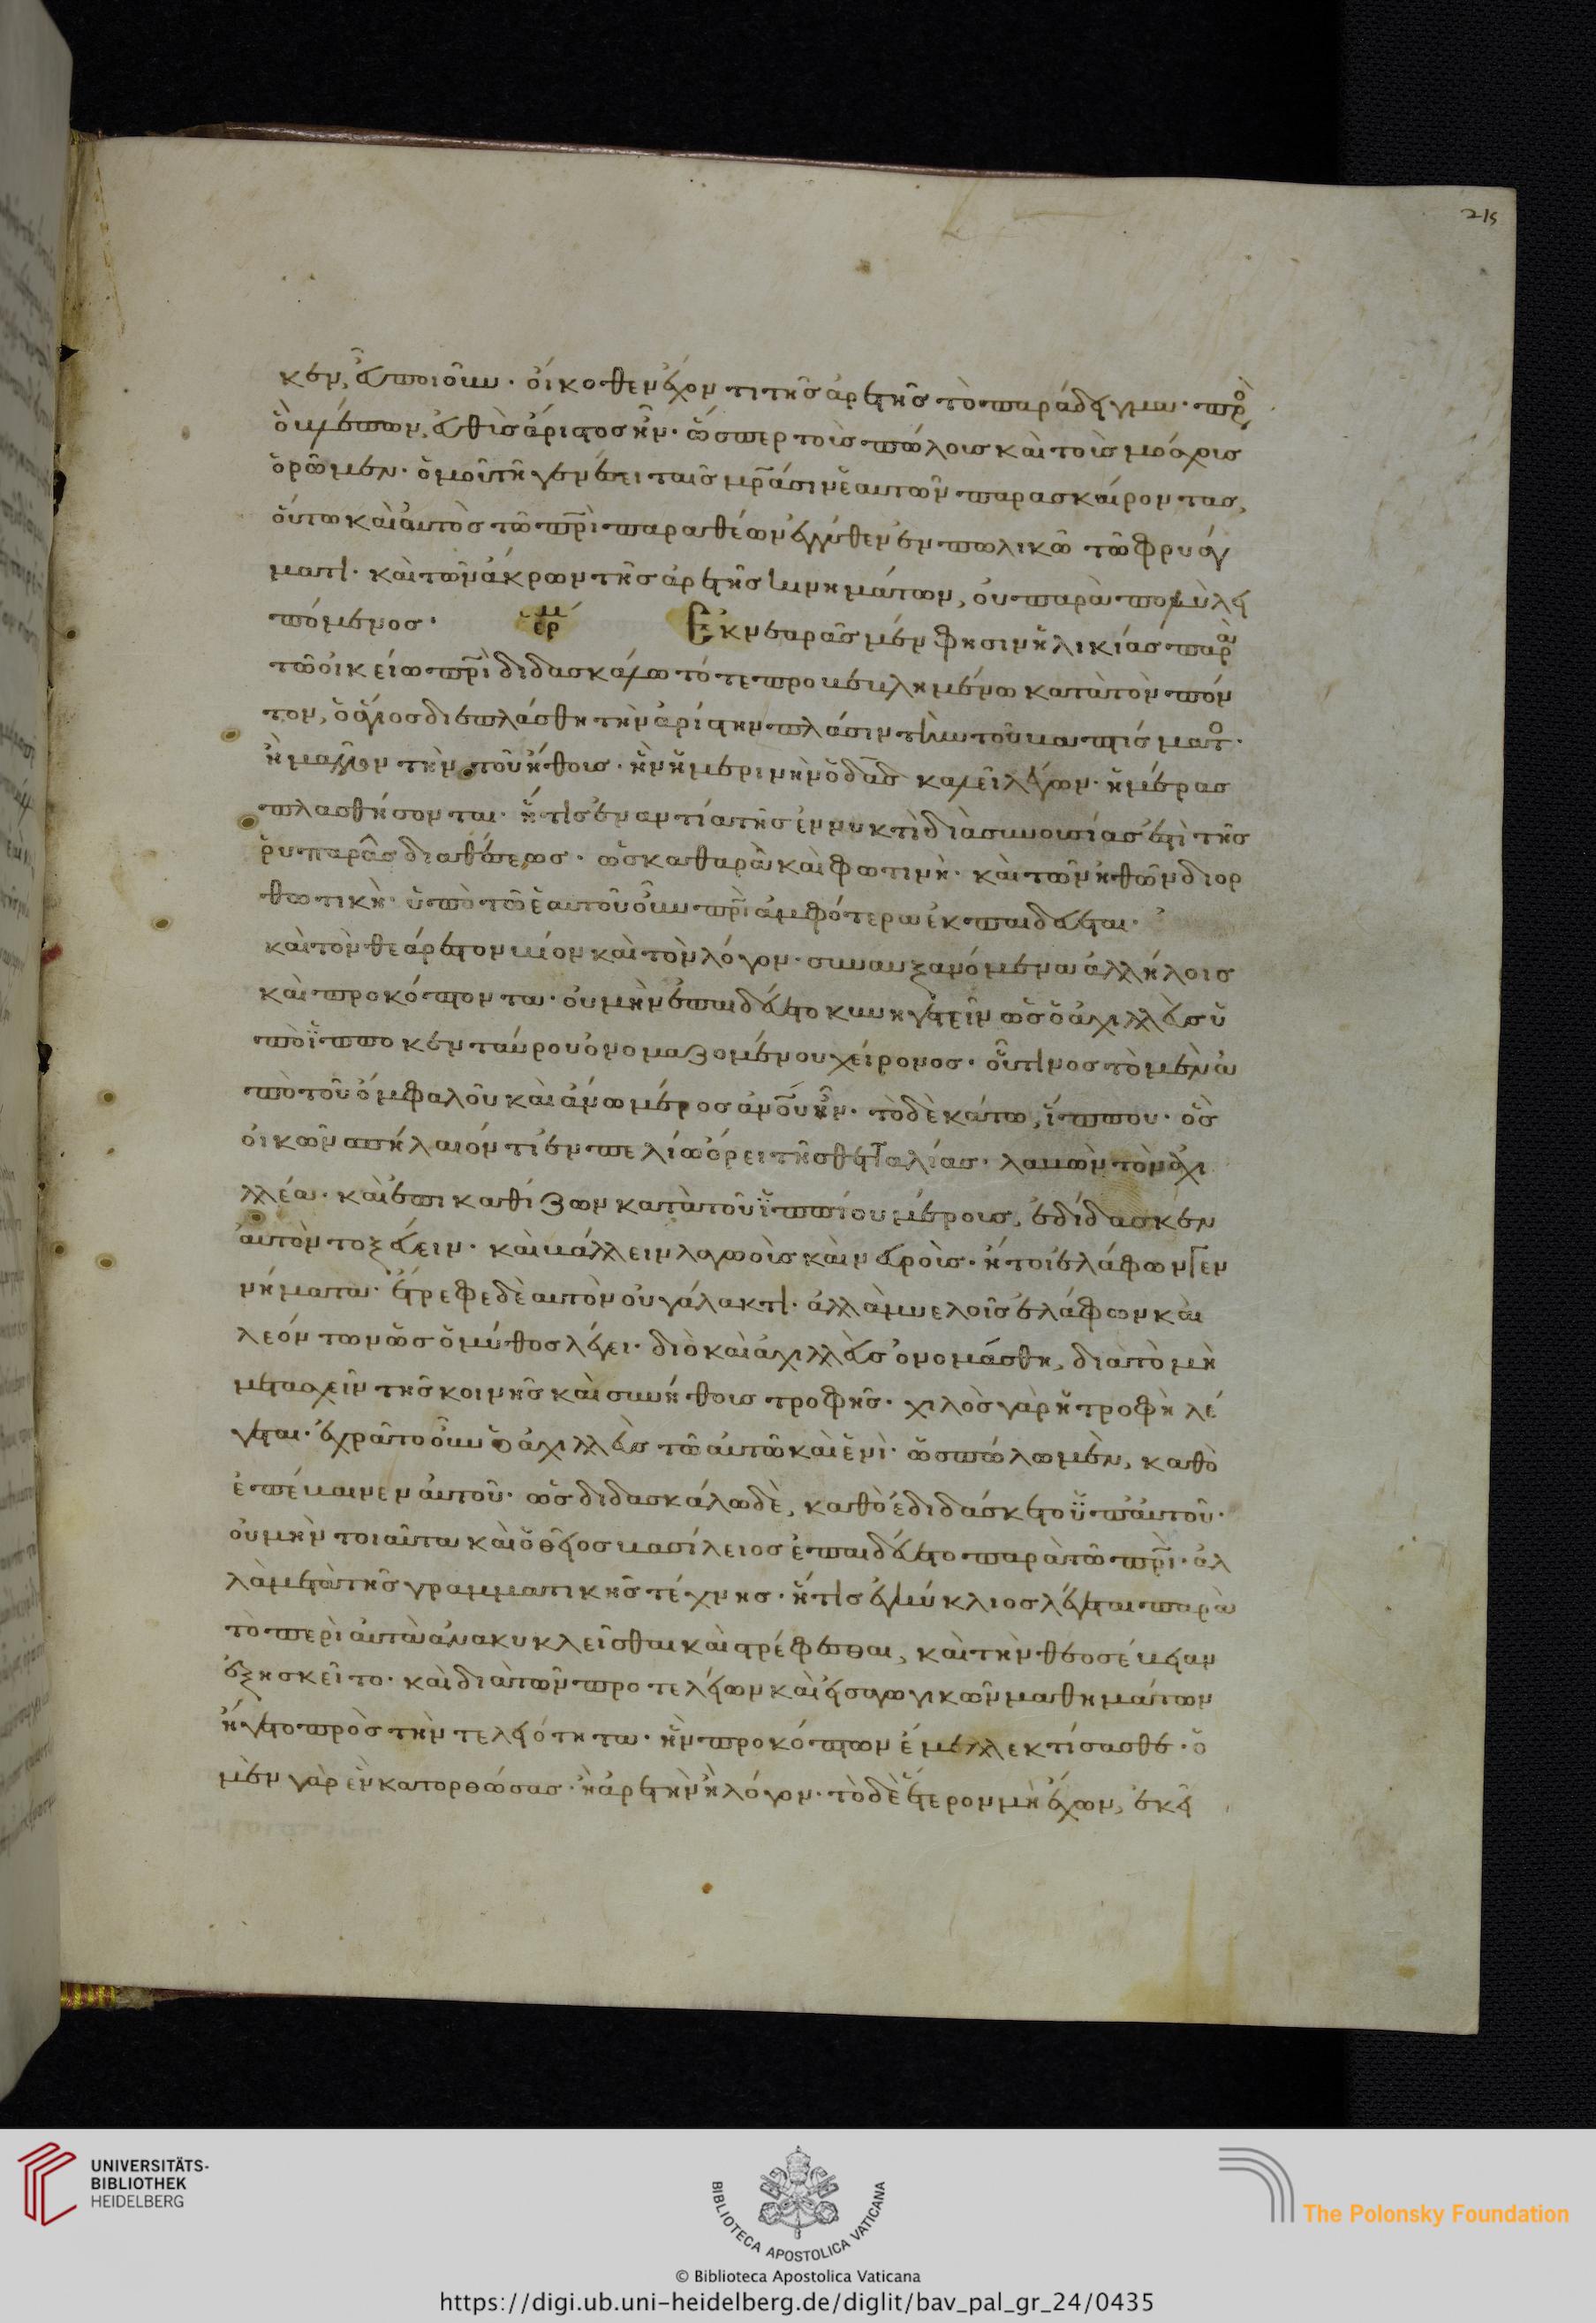 215
κεν, ἢ ἐποίουν. οἴκοθεν ἔχον τι τῆς ἀρετῆς τὸ παράδειγμα. πρὸ
ὃ βλέπων, εὐθὺς ἄριστος ἦν. ὥσπερ τοὺς πώλους καὶ τοὺς μόσχους
ὁρῶμεν. ὁμοῦ τῆ γενέσει ταῖς μρᾶσιν ἑαυτῶν παρασκαίροντας,
οὕτω καὶ αὐτὸς τῶ πρὶ παραθέων ἐγγύθεν ἐν πωλικῶ τῶ φρυάγ
ματι. καὶ τῶν ἄκρων τῆς ἀρετῆς κινημάτων, οὐ παρὰ πολὺ λει
πόμενος. ἑρμ Ἐκ νεαρᾶς μέν φησιν ἡλικίας παρὰ
τῶ οἰκείω πρὶ διδασκάλω τότε προβεβλημένω κατὰ τὸν πόν
τον, ὁ ἅγιος διεπλάσθη τὴν ἀρίστην πλάσιν τὴν τοῦ βαπτίσματο.
ἢ μᾶλλον τὴν τοῦ ἤθους. ἣν ἡμερινὴν ὁ δαδ καλεῖ λέγων. ἡμέρας
πλασθήσονται. ἥτις ἐναντία τῆς ἐν νυκτὶ διὰ συνουσίας ἐστὶ τῆς
ῥυπαρᾶς διαθέσεως. ὡς καθαρὰ καὶ φωτινὴ. καὶ τῶν ἠθῶν διορ
θωτικὴ. ὑπὸ τῶ ἑαυτοῦ οὖν πρὶ ἀμφότερα ἐκπαιδεύεται.
καὶ τὸν θεάρεστον βίον καὶ τὸν λόγον. συναυξανόμενα ἀλλήλοις
καὶ προκόπτοντα. οὐ μὴν ἐπαιδεύετο κυνηγετεῖν ὡς ὁ ἀχιλλεὺς ὑ
πὸ ἱπποκενταύρου ὀνομαζομένου χείρονος. οὗτινος τὸ μὲν ἀ
πὸ τοῦ ὀμφαλοῦ καὶ ἄνω μέρος ἀνοῦ ἦν. τὸ δὲ κάτω, ἵππου. ὃς
οἰκῶν σπήλαιόν τι ἐν πελίω ὄρει τῆς θετταλίας. λαβὼν τὸν ἀχι
λλέα. καὶ ἐπικαθίζων κατὰ τοῦ ἱππίου μέρους, ἐδίδασκεν
αὐτὸν τοξεύειν. καὶ βάλλειν λαγωοὺς καὶ νεβροὺς. ἤτοι ἐλάφων γεν
νήματα. ἔτρεφε δὲ αὐτὸν οὐ γάλακτι. ἀλλὰ μυελοῖς ἐλάφων καὶ
λεόντων ὡς ὁ μύθος λέγει. διὸ καὶ ἀχιλλεὺς ὀνομάσθη, διὰ τὸ μὴ
μετασχεῖν τῆς κοινῆς καὶ συνήθους τροφῆς. χιλὸς γὰρ ἡ τροφὴ λέ
γεται. ἐχρᾶτο οὖν ὁ ἀχιλλεὺς τῶ αὐτῶ καὶ ἑνὶ. ὡς πώλω μὲν, καθὸ
ἐπέβαινεν αὐτοῦ. ὡς διδασκάλω δὲ, καθὸ ἐδιδάσκετο ὑπ αὐτοῦ.
οὐ μὴν τοιαῦτα καὶ ὁ θεῖος βασίλειος ἐπαιδεύετο παρὰ τῶ πρὶ. ἀλ
λὰ μετὰ τῆς γραμματικῆς τέχνης. ἥτις ἐγκύκλιος λέγεται παρὰ
τὸ περὶ αὐτὰ ἀνακυκλεῖσθαι καὶ στρέφεσθαι, καὶ τὴν θεοσέβειαν
ἐξησκεῖτο. καὶ διὰ τῶν προτελείων καὶ εἰσαγωγικῶν μαθημάτων
ἤγετο πρὸς τὴν τελειότητα. ἣν προκόπτων ἔμελλε κτίσασθε. ὁ
μὲν γὰρ ἓν κατορθώσας. ἢ ἀρετὴν ἢ λόγον. τὸ δὲ ἕτερον μὴ ἔχων, ἐκεῖ
UNIVERSITÄTS-
BIBLIOTHEK
HEIDELBERG
BIBLIOTECA APOSTOLICA VATICANA
The Polonsky Foundation
© Biblioteca Apostolica Vaticana
https://digi.ub.uni-heidelberg.de/diglit/bav_pal_gr_24/0435